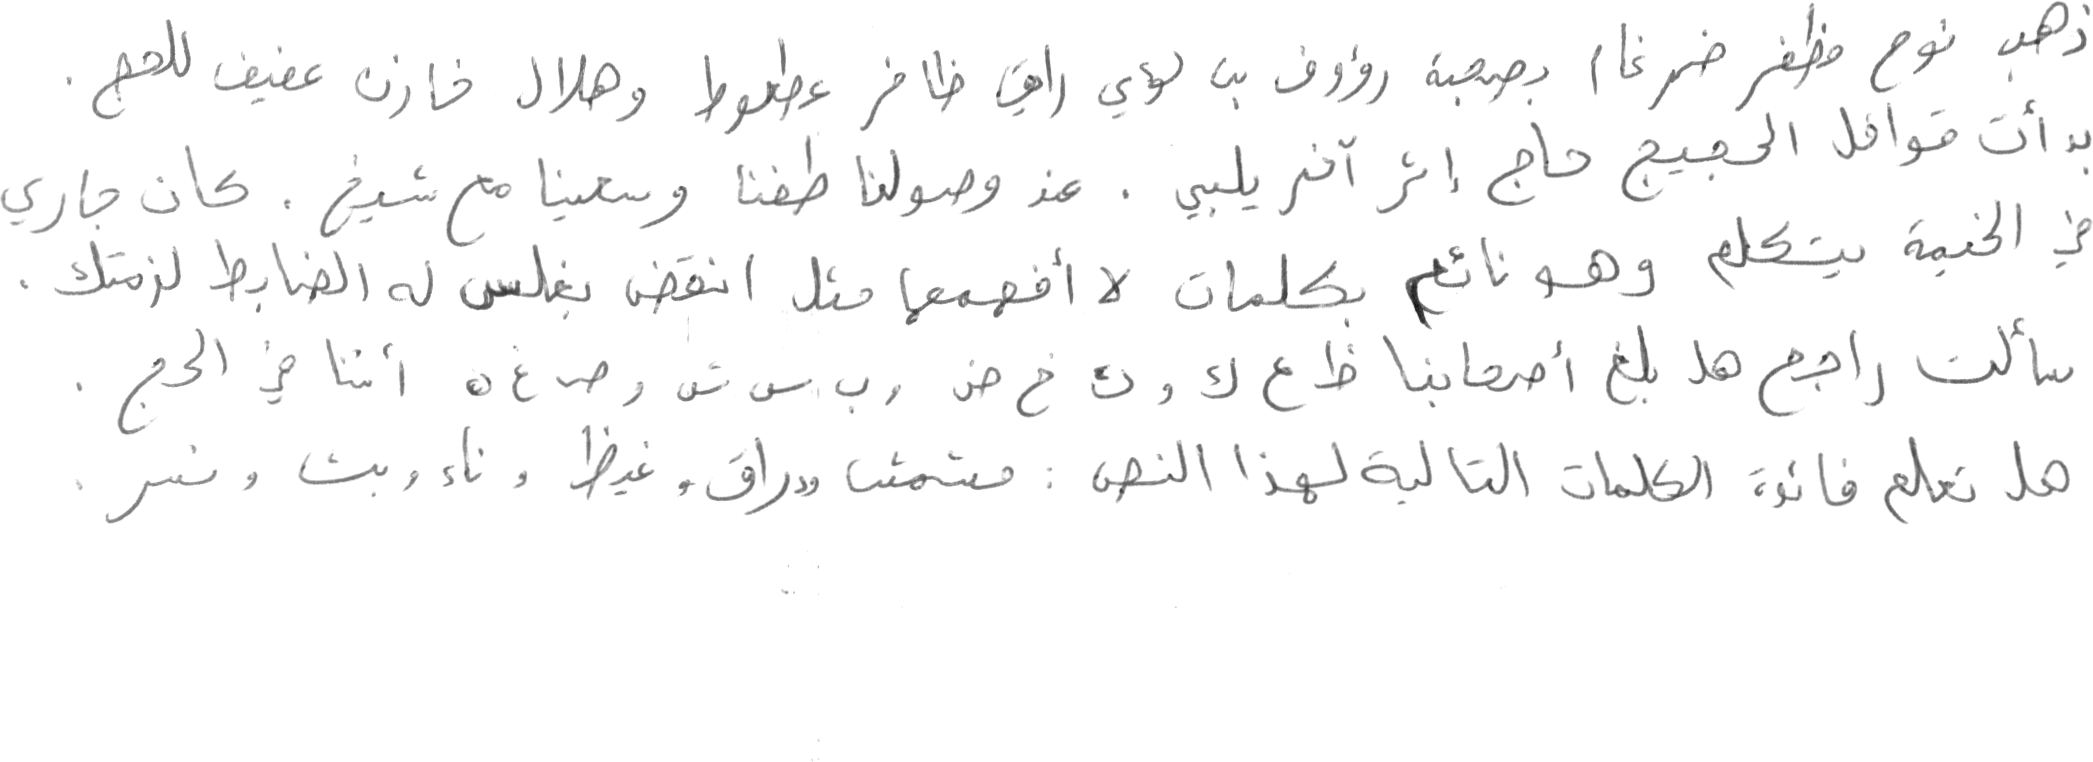 ذهب نوح مظفر ضرغام بصحبة رؤوف بن لؤي راهق ظافر عطعوط وهلال خازن عفيف للحج .
بدأت قوافل الحجيج حاج إثر آخر يلبي . عند وصولنا طفنا وسعينا مع شيخ . كان جاري
في الخيمة يتكلم وهو نائم بكلمات لا أفهمها مثل انقض بغلس له الضابط لزمتك .
سألت راجح هل بلغ أصحابنا ظ ع ك و ث خ ض و ب س ش و ص غ ه أننا في الحج .
هل تعلم فائدة الكلمات التالية لهذا النص : مشمش وراق وغيظ و ناء وبث و نسر .